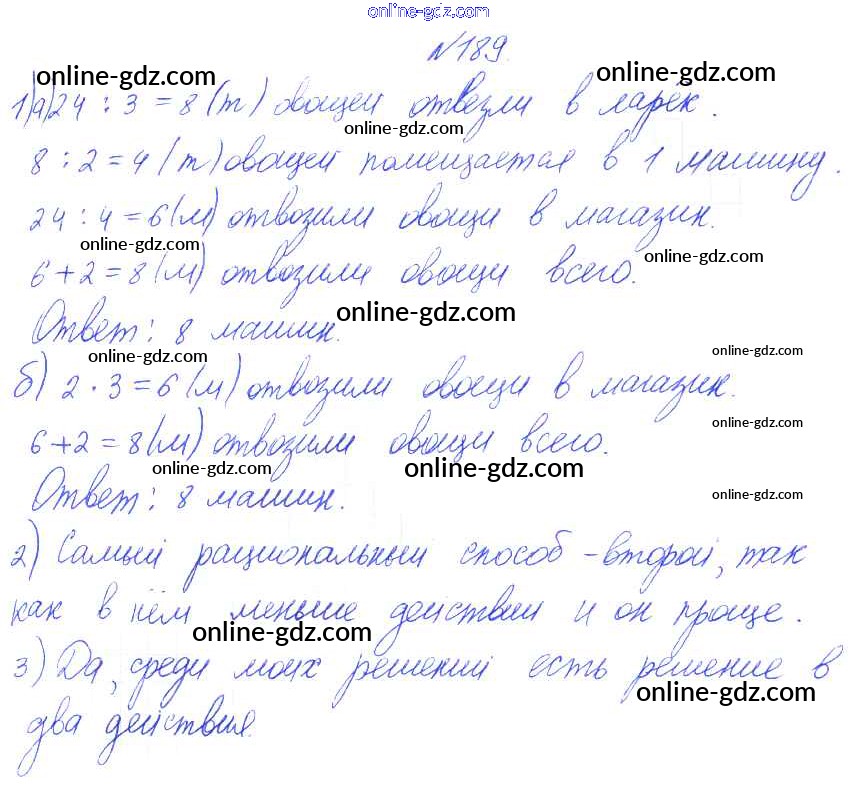 online-gdz.com
№189.
online-gdz.com online-gdz.com
1)а)24 : 3 = 8 (т) овощей отвезли в ларек.
online-gdz.com
8 : 2 = 4 (т) овощей помещается в 1 машину.
24 : 4 = 6 (м) отвозили овощи в магазин.
online-gdz.com online-gdz.com
6 + 2 = 8 (м) отвозили овощи всего.
online-gdz.com
Ответ: 8 машин.
online-gdz.com online-gdz.com
б) 2 · 3 = 6 (м) отвозили овощи в магазин.
online-gdz.com
6 + 2 = 8 (м) отвозили овощи всего.
online-gdz.com online-gdz.com
Ответ: 8 машин.
online-gdz.com
2) Самый рациональный способ - второй, так
как в нём меньше действий и он проще.
online-gdz.com
3) Да, среди моих решений есть решение в
online-gdz.com
два действия.